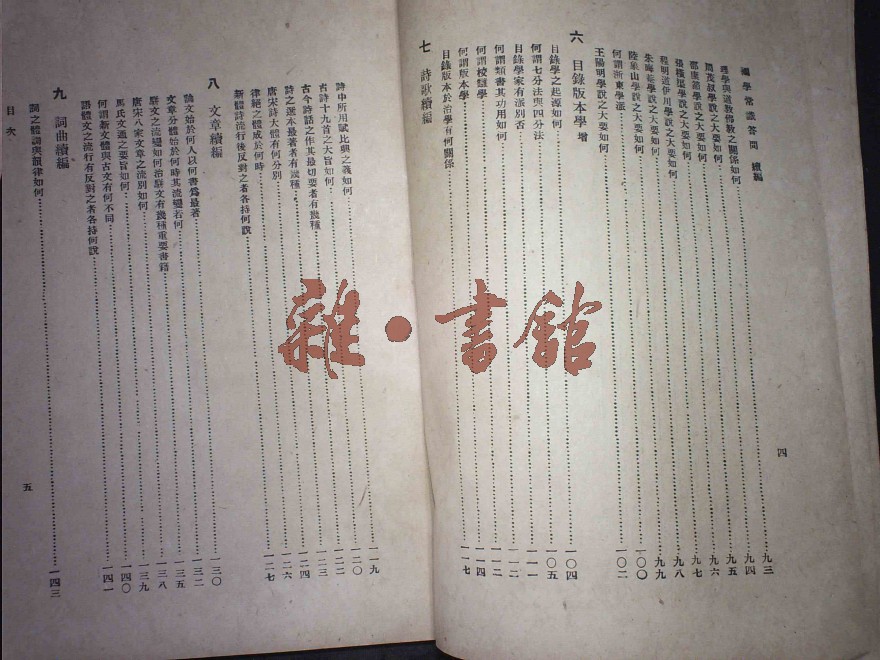 國學常識答問 續編
四
理學與道教佛教之關係如何
九三
周茂叔學說之大要如何
九四
邵康節學說之大要如何
九五
張橫渠學說之大要如何
九六
程明道伊川學說之大要如何
九七
朱晦菴學說之大要如何
九八
陸象山學說之大要如何
九九
何謂浙東學派
一〇〇
王陽明學說之大要如何
一〇二
六 目錄版本學 增
一〇四
目錄學之起源如何
一〇五
何謂七分法與四分法
一一一
目錄學家有派別否
一一二
何謂類書其功用如何
一一二
何謂校讎學
一一四
何謂版本學
一一七
目錄版本於治學有何關係
七 詩歌續編
一一九
詩中所用賦比興之義如何
一二〇
古詩十九首之大旨如何
一二二
古今詩話之作其最切要者有幾種
一二四
詩之選本最著者有幾種
一二六
唐宋詩大體有何分別
一二七
律絕之體成於何時
新體詩流行後反對之者各持何說
八 文章續編
一三〇
論文始於何人以何書爲最著
一三二
文章分體始於何時其流變若何
一三五
駢文之流變如何治駢文有幾種重要書籍
一三八
唐宋八家文章之流別如何
一三九
馬氏文通之要旨如何
一四〇
何謂新文體與古文有何不同
一四一
語體文之流行有反對之者各持何說
九 詞曲續編
一四三
詞之體調與韻律如何
目次
五
雜·書館